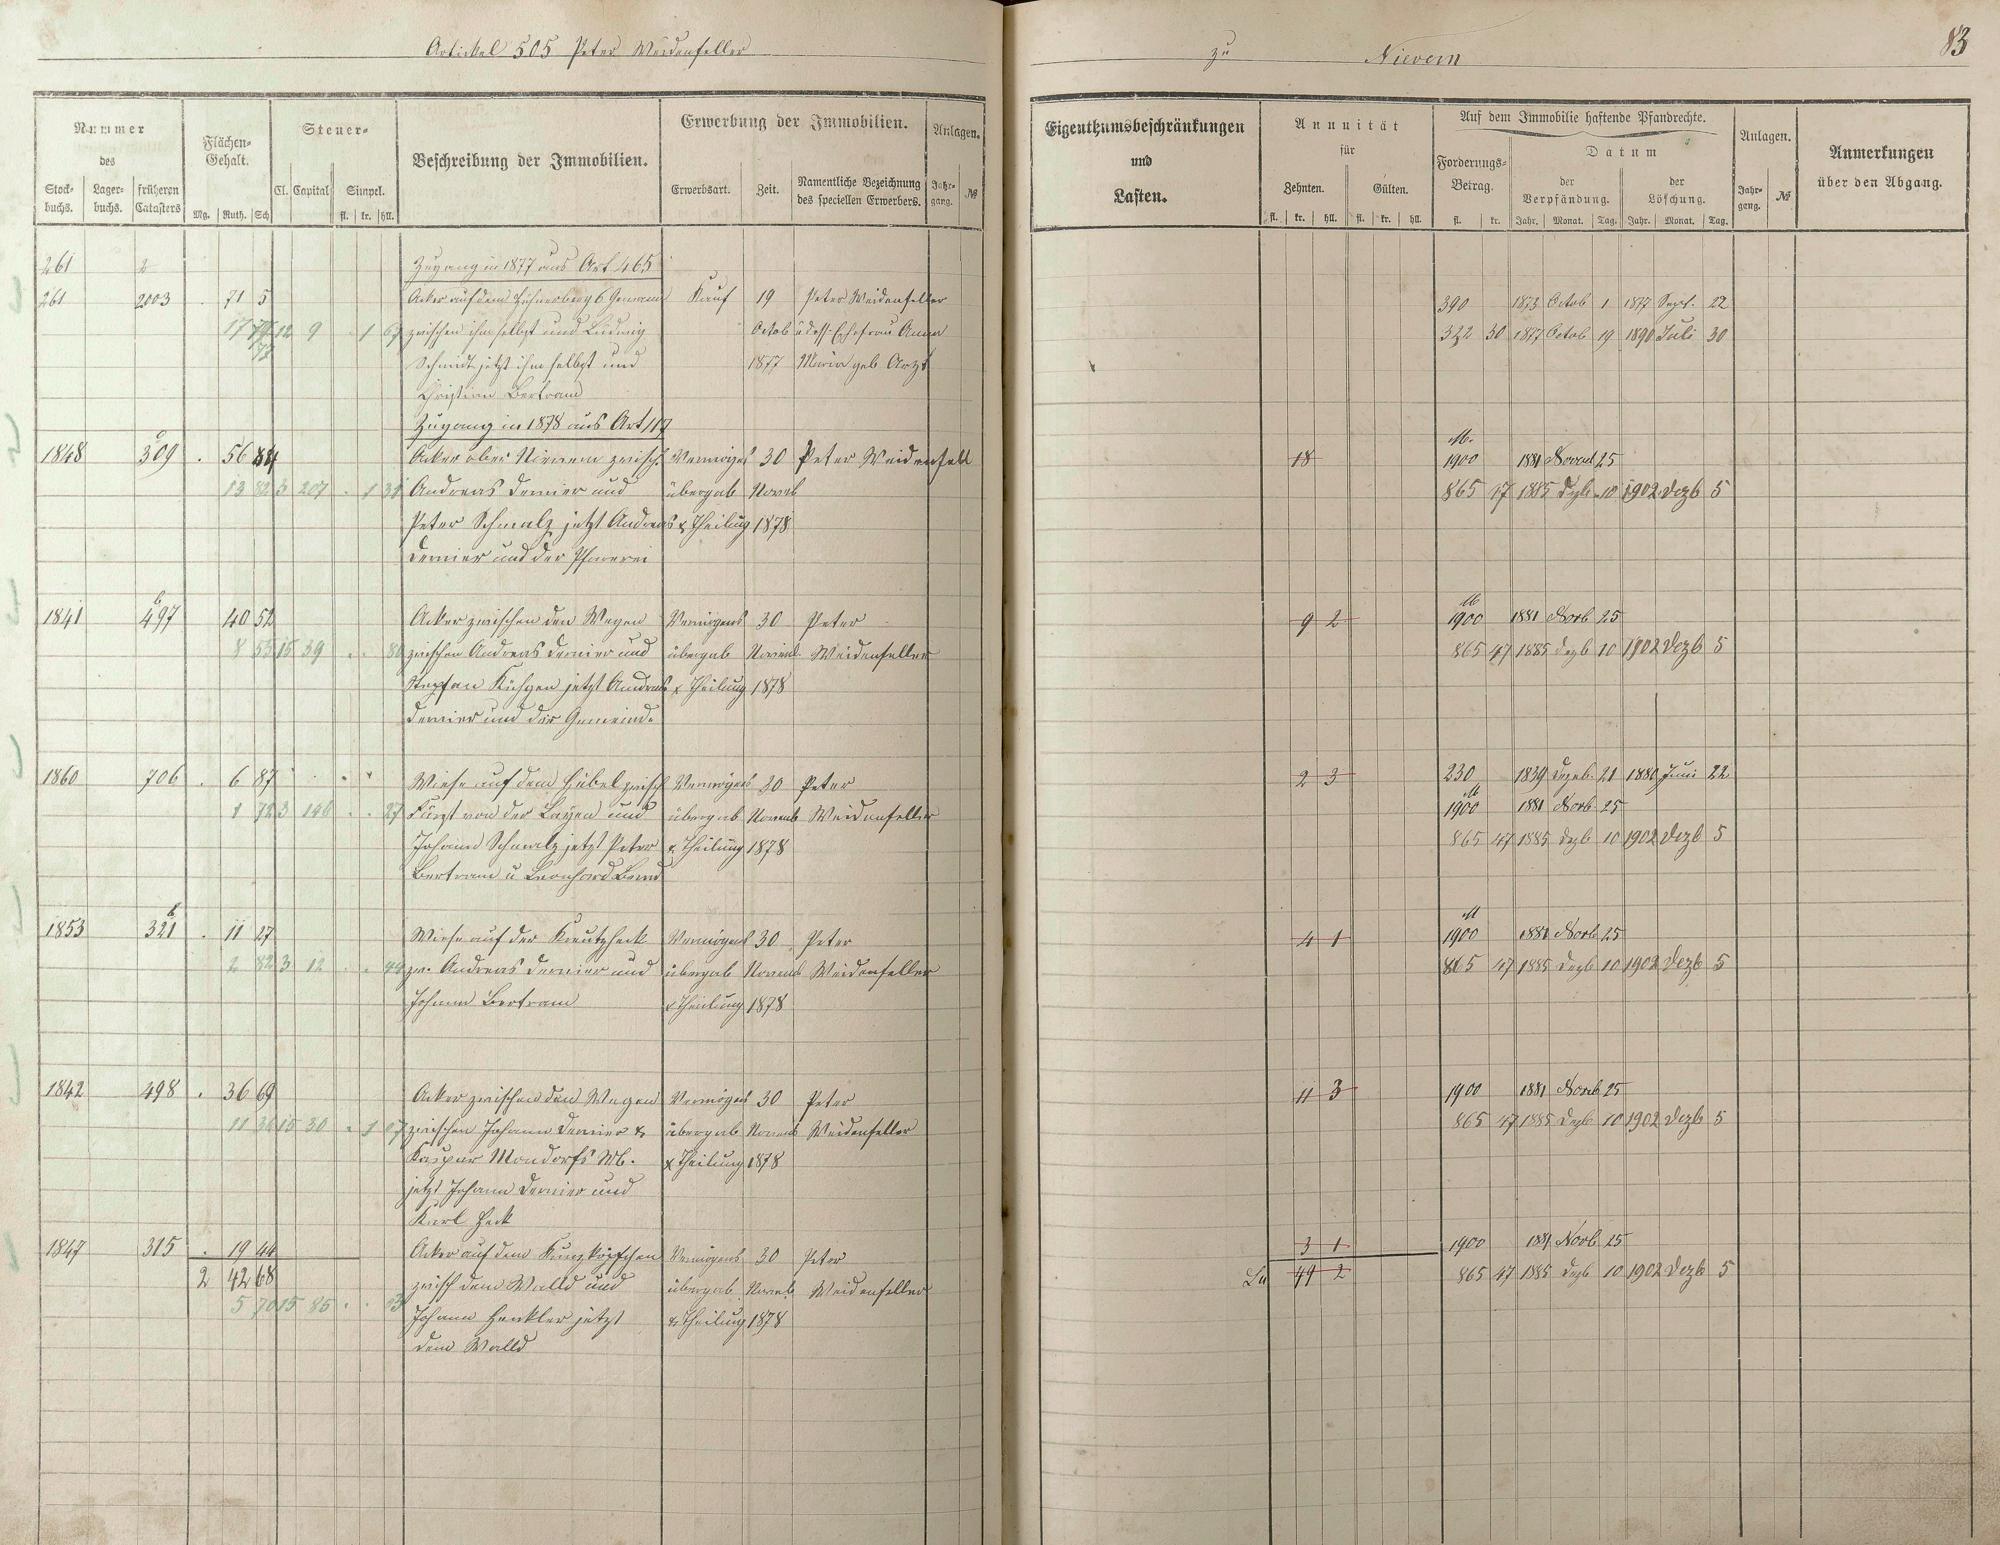 Artickel 505 Peter Weidenfeller
Nummer
des
Stock-
buchs.
Lager-
buchs.
früheren
Catasters
Flächen-
Gehalt.
Mg. Ruth. Sch
Steuer-
Cl. Capital Simpel.
fl. kr. hll.
Beschreibung der Immobilien.
Erwerbung der Immobilien.
Erwerbsart. Zeit.
Namentliche Bezeichnung
des speciellen Erwerbers.
Anlagen.
Jahr-
gang.
№
261 2 Zugang in 1877 aus Art 465
261 2003 . 71 5 Acker auf dem Hühnerberg 6 Gewann Kauf 19 Peter Weidenfeller
12 9 . 1 67 zwischen ihm selbst und Ludwig Octob u dess. Ehefrau Anna
Schmidt jetzt ihm selbst und 1877 Maria geb Arzt
Christian Bertram
Zugang in 1878 aus Art 117
1848 309 . 56 Acker ober Nievern zwisch. Vermögens 30 Peter Weidenfell
13 82 3 207 . 1 31 Andreas Dernier und übergab Novb
Peter Schmalz jetzt Andreas & Theilung 1878
Dernier und der Pfarrei
1841 497 b 40 52 Acker zwischen den Wegen Vermögens 30 Peter
8 55 15 39 . . 80 zwischen Andreas Dernier und übergab Novemb. Weidenfeller
Stephan jetzt Andreas & Theilung 1878
Dernier und der Gemeinde
1860 706 . 6 87 Wiese auf dem Hübel zwisch Vermögens 30 Peter
1 72 3 146 . . 27 Fürst von der Layen und übergab Novemb Weidenfeller
Johann Schmalz jetzt Peter & Theilung 1878
Bertram u Leonhard
1853 321 b . 11 27 Wiese auf der Kreutzheck Vermögens 30 Peter
2 82 3 12 . . 44 zw. Andreas Dernier und übergab Novemb Weidenfeller
Johann Bertram & Theilung 1878
1842 498 . 36 69 Acker zwischen den Wegen Vermögens 30 Peter
11 36 15 30 . 1 07 zwischen Johann Dernier & übergab Novemb Weidenfeller
Kaspar Mondorfs Wb. & Theilung 1878
jetzt Johann Dernier und
Karl Heck
1847 315 . 19 44 Acker auf dem Vermögens 30 Peter
2 42 68 zwisch dem Walld und übergab Novb. Weidenfeller
5 70 15 85 . . 53 Johann Henkler jetzt & Theilung 1878
dem Walld
zu Nievern 83
Eigenthumsbeschränkungen
und
Lasten.
Annuität
für
Zehnten. Gülten.
fl. kr. hll. fl. kr. hll.
Auf dem Immobilie haftende Pfandrechte.
Forderungs-
Betrag.
fl. kr.
Datum
der
Verpfändung.
Jahr. Monat. Tag.
der
Löschung.
Jahr. Monat. Tag.
Anlagen.
Jahr-
gang.
№
Anmerkungen
über den Abgang.
390 1873 Octob 1 1877 Sept. 22
322 30 1877 Octob 19 1890 Juli 30
M.
18 1900 1881 Novemb 25
865 47 1885 Dezb 10 1902 Dezb 5
M
9 2 1900 1881 Novb 25
865 47 1885 Dezb 10 1902 Dezb 5
2 3 230 1839 Dezeb. 21 1880 Juni 22
M
1900 1881 Novb 25
865 47 1885 Dezb 10 1902 Dezb 5
M
4 1 1900 1881 Novb 25
865 47 1885 Dezb 10 1902 Dezb 5
11 3 1900 1881 Novb 25
865 47 1885 Dezb 10 1902 Dezb 5
3 1 1900 1881 Novb 25
49 2 865 47 1885 Dezb 10 1902 Dezb 5